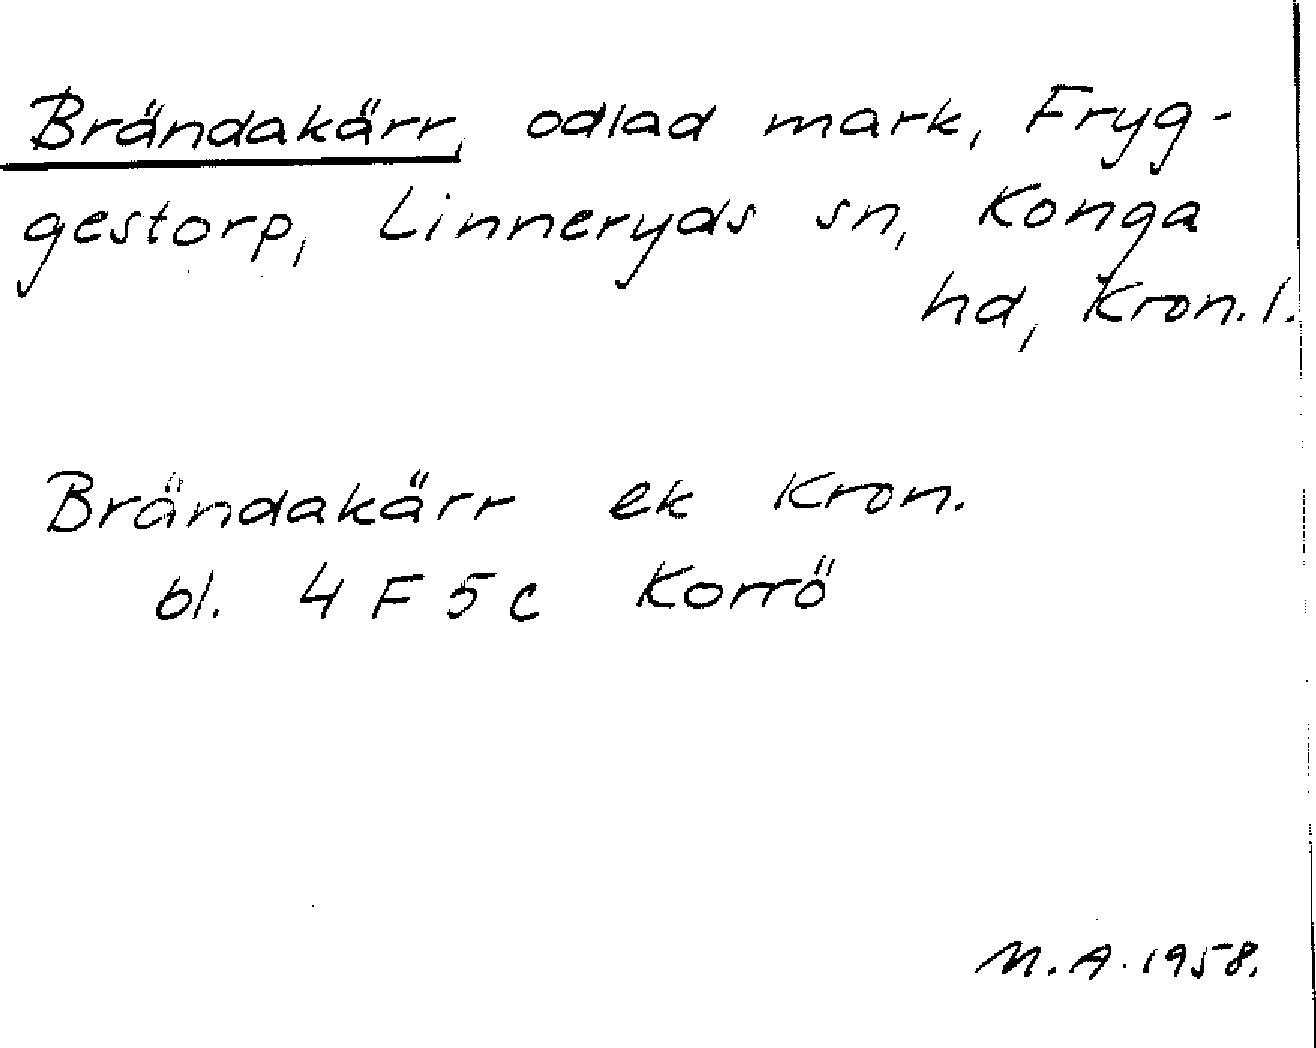 Brändakärr, odlad mark, Fryg-
gestorp, Linneryds sn, Konga
hd, Kron. l.
Brändakärr ek Kron.
bl. 4 F 5 c Korrö
M. A. 1958.